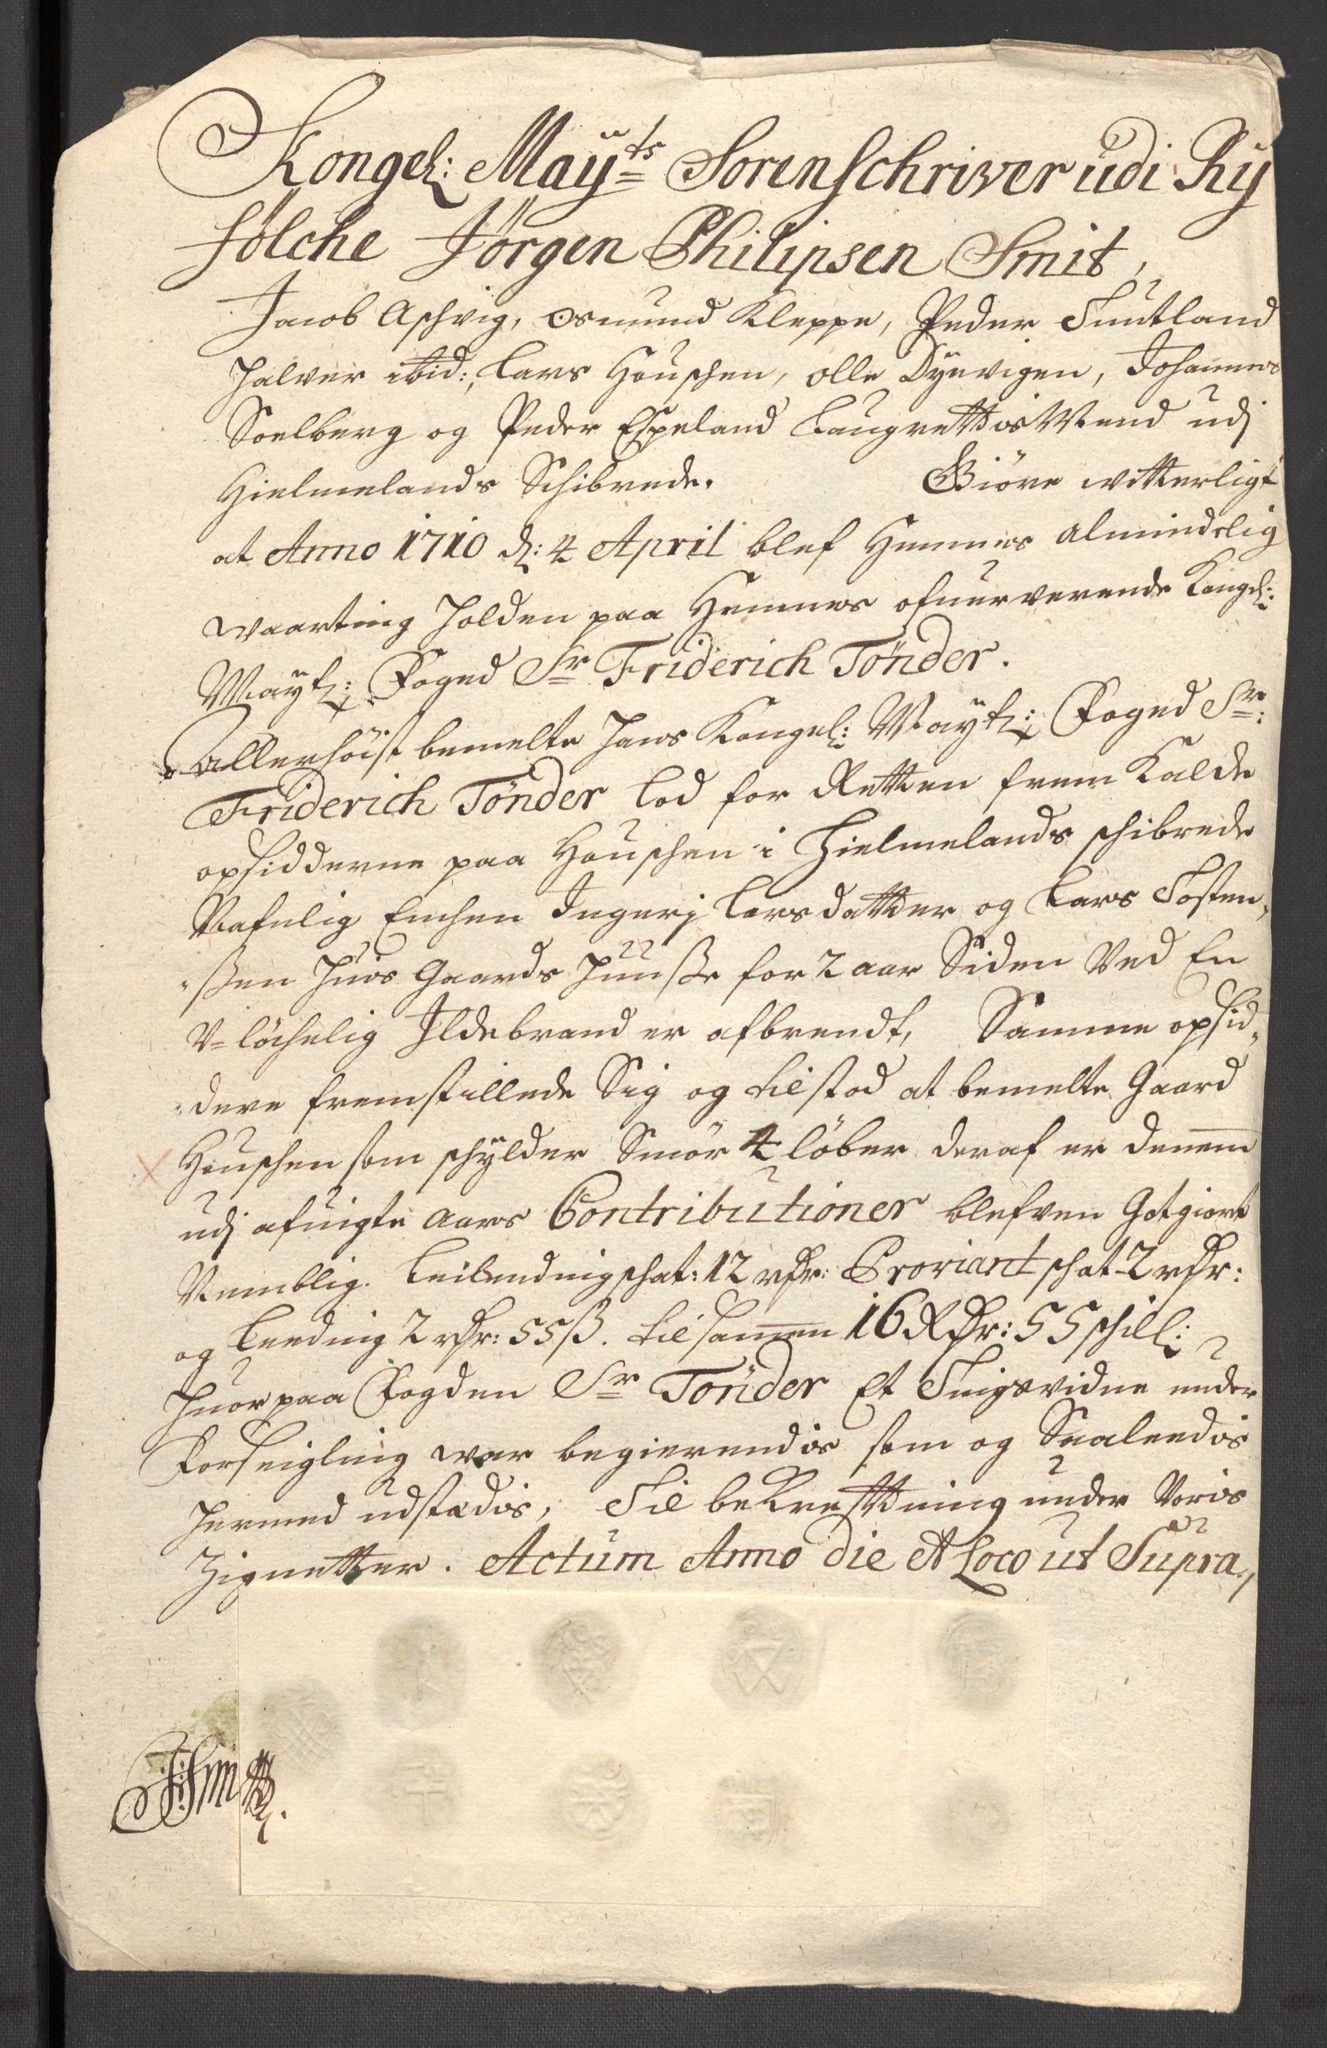 Kongel: Mayts Sorenschriver udi Ry
fölche Jörgen Philipsen Smit,
Jacob Aschvig, Osmund Kleppe, Peder Tuutland
Halver ibid:, Lars Houschen, olle Dyrvigen, Johannes
Soelberg og Peder Espeland Laugrettis Mend udj
Hielmelands Schibrede. Giöre witterligt
at Anno 1710 d: 4 April blef Hemnes almindelig
waarting holden paa Hemnes ofuerverende Kongel:
Mayts: Foged Sr Friderich Tönder.
Allerhöist bemelte Hans Kongel: Mayts: Foged Sr:
Friderich Tönder lod for Retten frem Kalde
opsidderne paa Houschen i Hielmelands schibrede
Nafnlig Enchen Ingerj Larsdatter og Lars Tosten,
ßen huis Gaards Huuße for 2 aar Siden Ved En
V=löchelig Ildebrand er afbrendt, Samme opsid,
dere fremstillede Sig og tilstod at bemelte Gaard
Houschen som schylder Smör 4 löber deraf er dennem
udj afuigte Aars Contributioner blefven Godgiort
Nemblig. Leilendingschat: 12 rdr: Proviant schat 2 rdr:
og Leeding 2 rdr: 55 ß. tilsammen 16 Rdr: 55 schill:
Huorpaa Fogden Sr Tönder Et Tingsvidne under
Forseigling war begierendis som og Saaleedis
hermed udstædis, Til beKrefftning under Voris
Zignetter. Actum Anno die et Loco ut Supra,
JPSmitt.